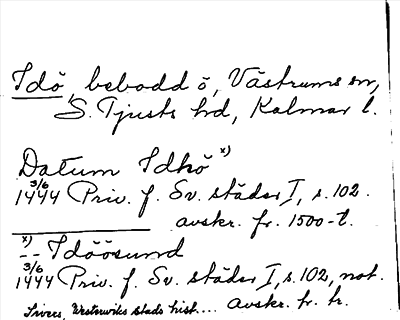 Idö, bebodd ö, Västrums sn,
S. Tjusts hd, Kalmar l.
Datum Idhö x)
3/6
1444 Priv. f. Sv. städer I, s. 102.
avskr. fr. 1500-t.
x)
-- Idöösund
3/6
1444 Priv. f. Sv. städer I, s. 102, not.
Sivers, Westerwiks stads hist.... avskr. fr. tr.